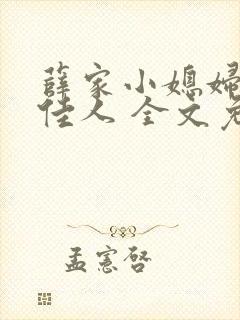 薛家小媳妇
佳人 全文免
孟宪启